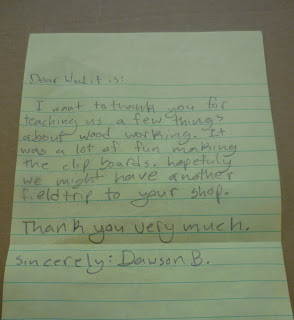 Dear Wood it is:
I want to thank you for
teaching us a few things
about wood working. It
was a lot of fun making
the clip boards. hopefuly
we might have another
fieldtrip to your shop.
Thank you very much.
Sincerely: Dawson B.